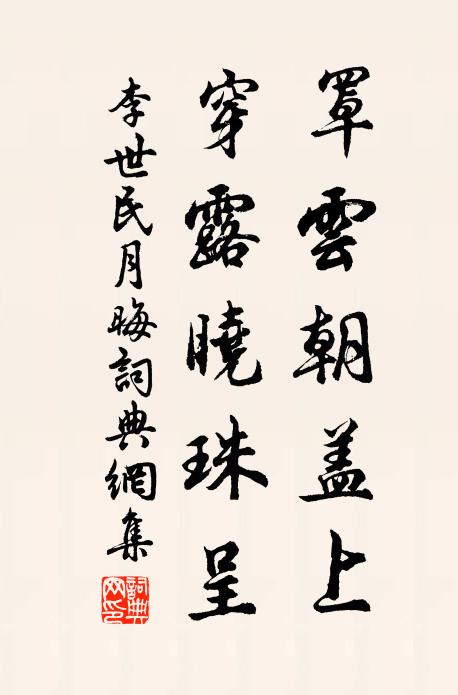 罩雲朝盖上
穿露曉珠呈
李世民月晦詞典網集
詞典网印